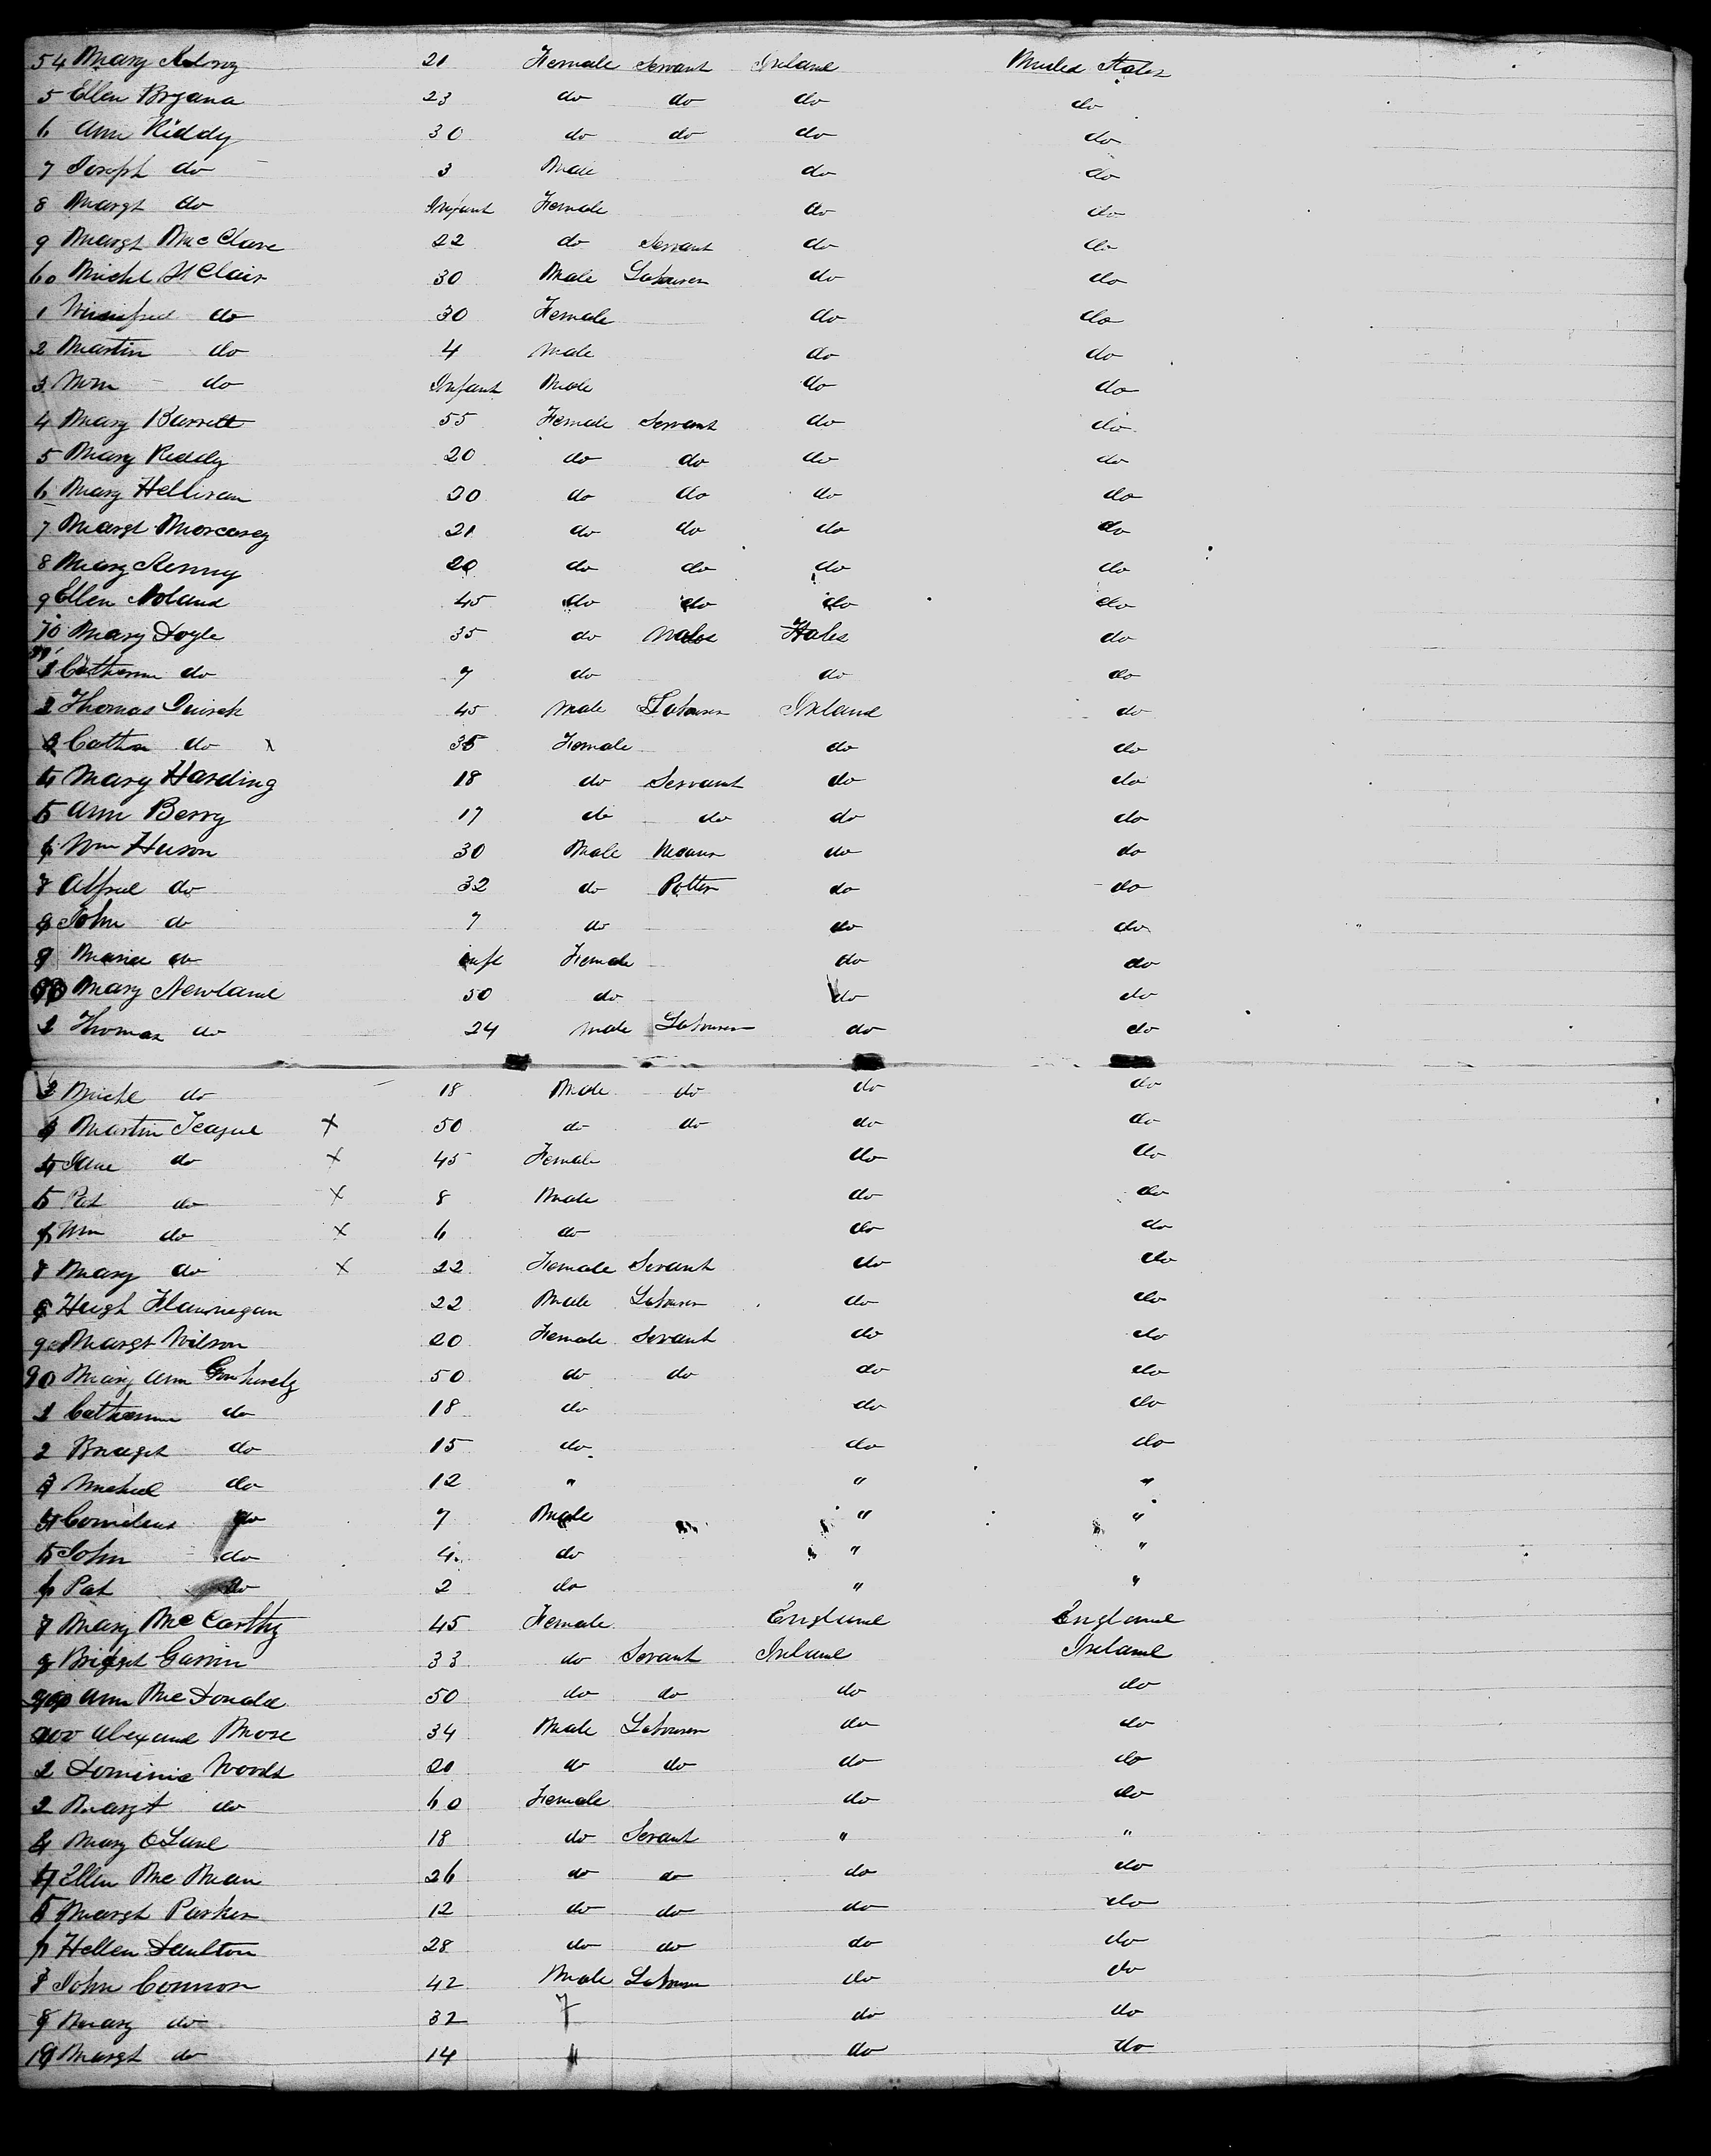 54 Mary 21 Female Servant Ireland United States
5 Ellen Bryana 23 do do do do
6 Ann Kiddy 30 do do do do
7 Joseph do 3 Male do do
8 Margt do Infant Female do do
9 Margt McClare 22 do Servant do do
60 Michl St Clair 30 Male Labourer do do
1 Winnifred do 30 Female do do
2 Martin do 4 Male do do
3 Wm do Infant Male do do
4 Mary Barrett 55 Female Servant do do
5 Mary Kiddy 20 do do do do
6 Mary Helliran 20 do do do do
7 Margt Morcarey 21 do do do do
8 Mary Kenny 20 do do do do
9 Ellen Noland 45 do do do do
70 Mary Doyle 35 do Wales do
1 Catherine do 7 do do do
2 Thomas Quirk 45 Male Labourer Ireland do
3 Cathn do 35 Female do do
4 Mary Harding 18 do Servant do do
5 Ann Berry 17 do do do do
6 Wm Huson 30 Male do do
7 Alfred do 32 do Potter do do
8 John do 7 do do do
9 Maria do inft Female do do
Mary Newland 50 do do do
Thomas do 24 Male Labourer do do
2 Michl do 18 Male do do do
Martin Teague X 50 do do do do
4 Jane do X 45 Female do do
5 Pat do X 8 Male do do
6 Wm do X 6 do do do
7 Mary do X 22 Female Servant do do
8 Hugh Flannegan 22 Male Labourer do do
9 Margt Wilson 20 Female Servant do do
90 Mary Ann 50 do do do do
1 Catherine do 18 do do do
2 Bridget do 15 do do do
3 Michael do 12 " " "
4 Cornelius do 7 Male " "
5 John do 4 do " "
6 Pat do 2 do " "
7 Mary McCarthy 45 Female England England
8 Bridget Gavin 33 do Servant Ireland Ireland
Ann McDonald 50 do do do do
Alexand More 34 Male Labourer do do
Dominic Woods 20 do do do do
2 Margt do 60 Female do do
Mary O Lane 18 do Servant " "
4 Ellen McMean 26 do do do do
5 Margt Parker 12 do do do do
6 Hellen Daulton 28 do do do do
John Connor 42 Male Labourer do do
Mary do 32 F do do
Margt do 14 " do do